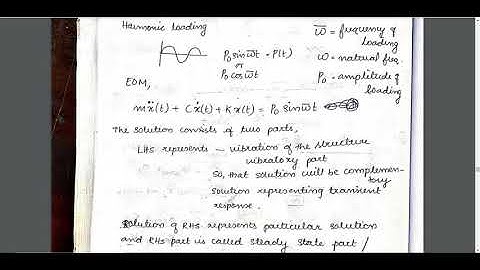 Harmonic loading
P₀ sinω̄t = P(t)
or
P₀ cosω̄t
ω̄ = frequency of
loading
ω = natural freq.
P₀ = amplitude of
loading
EOM,
mẍ(t) + Cẋ(t) + Kx(t) = P₀ sinω̄t
The solution consists of two parts,
LHS represents – vibration of the structure
vibratory part
So, that solution will be complemen-
tary
solution representing transient
response.
Solution of RHS represents particular solution
and RHS part is called steady state part /